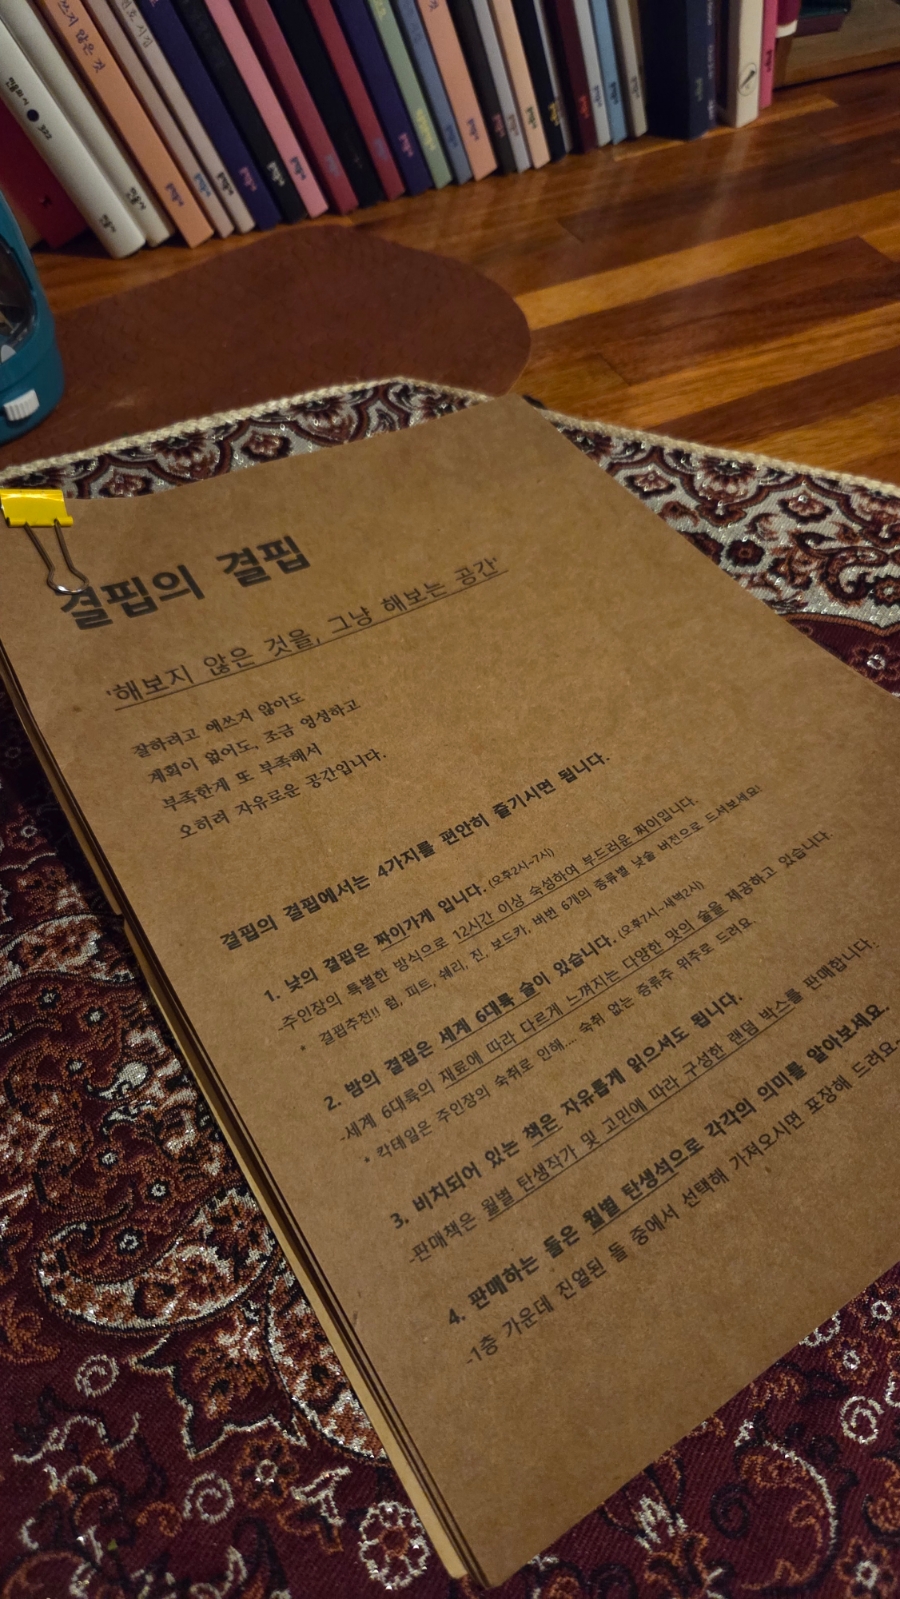 쓰지 않은 것
결핍의 결핍
'해보지 않은 것을, 그냥 해보는 공간'
잘하려고 애쓰지 않아도
계획이 없어도, 조금 엉성하고
부족한게 또 부족해서
오히려 자유로운 공간입니다.
결핍의 결핍에서는 4가지를 편안히 즐기시면 됩니다.
1. 낮의 결핍은 짜이가게 입니다. (오후2시~7시)
-주인장의 특별한 방식으로 12시간 이상 숙성하여 부드러운 짜이입니다.
* 결핍추천!! 럼, 피트, 쉐리, 진, 보드카, 버번 6개의 종류별 낮술 버전으로 드셔보세요!
2. 밤의 결핍은 세계 6대륙 술이 있습니다. (오후7시~새벽2시)
-세계 6대륙의 재료에 따라 다르게 느껴지는 다양한 맛의 술을 제공하고 있습니다.
* 칵테일은 주인장의 숙취로 인해.... 숙취 없는 증류주 위주로 드려요.
3. 비치되어 있는 책은 자유롭게 읽으셔도 됩니다.
-판매책은 월별 탄생작가 및 고민에 따라 구성한 랜덤 박스를 판매합니다.
4. 판매하는 돌은 월별 탄생석으로 각각의 의미를 알아보세요.
-1층 가운데 진열된 돌 중에서 선택해 가져오시면 포장해 드려요~